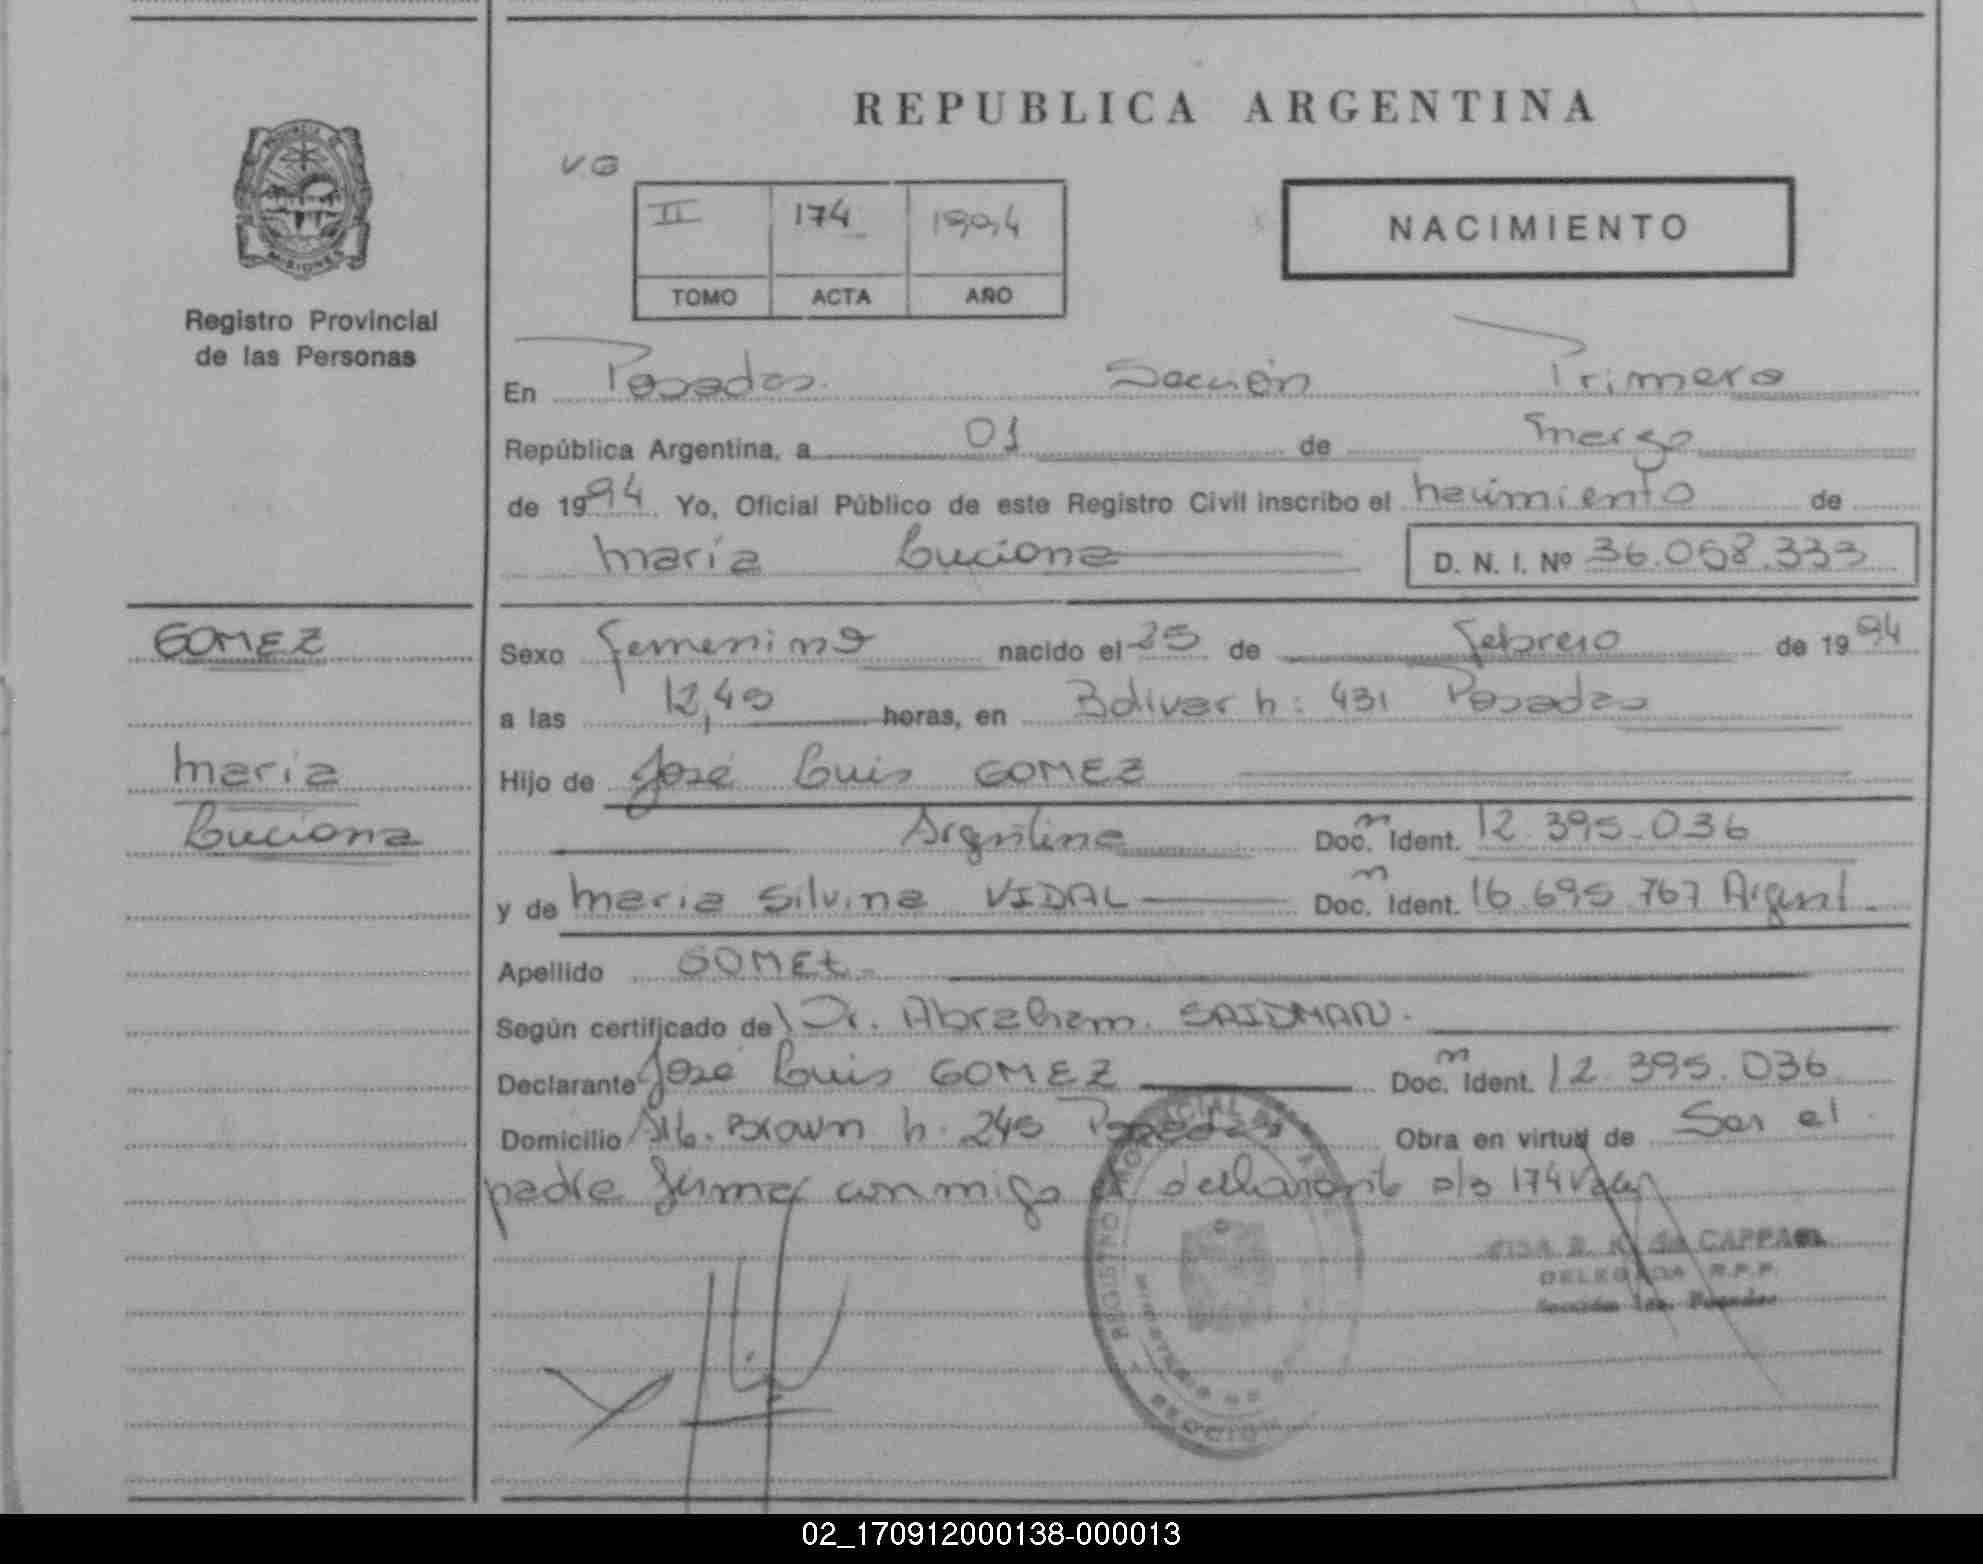 REPUBLICA ARGENTINA
V.G
II 174 1994
TOMO ACTA AÑO
NACIMIENTO
MISIONES
Registro Provincial
de las Personas
En Posadas. Sección Primera
República Argentina, a 01 de marzo
de 1994 Yo, Oficial Público de este Registro Civil inscribo el nacimiento de
María Luciana D. N. I. Nº 36.058.333
GOMEZ
María
Luciana
Sexo femenino nacido el 25 de febrero de 1994
a las 12,45 horas, en Bolivar n: 431 Posadas
Hijo de José Luis GOMEZ
Argentino Doc. Ident. 12.395.036
y de María Silvina VIDAL Doc. Ident. 16.695.767 Argent.
Apellido GOMEZ
Según certificado del Dr. Abraham SAIDMAN.
Declarante José Luis GOMEZ Doc. Ident. 12.395.036
Domicilio Alte. Brown n. 245 Posadas Obra en virtud de Ser el
padre firma conmigo el declarante 174
de CAPPA
DELEGADA R.P.P.
Sección 1ra. Posadas
02_170912000138-000013